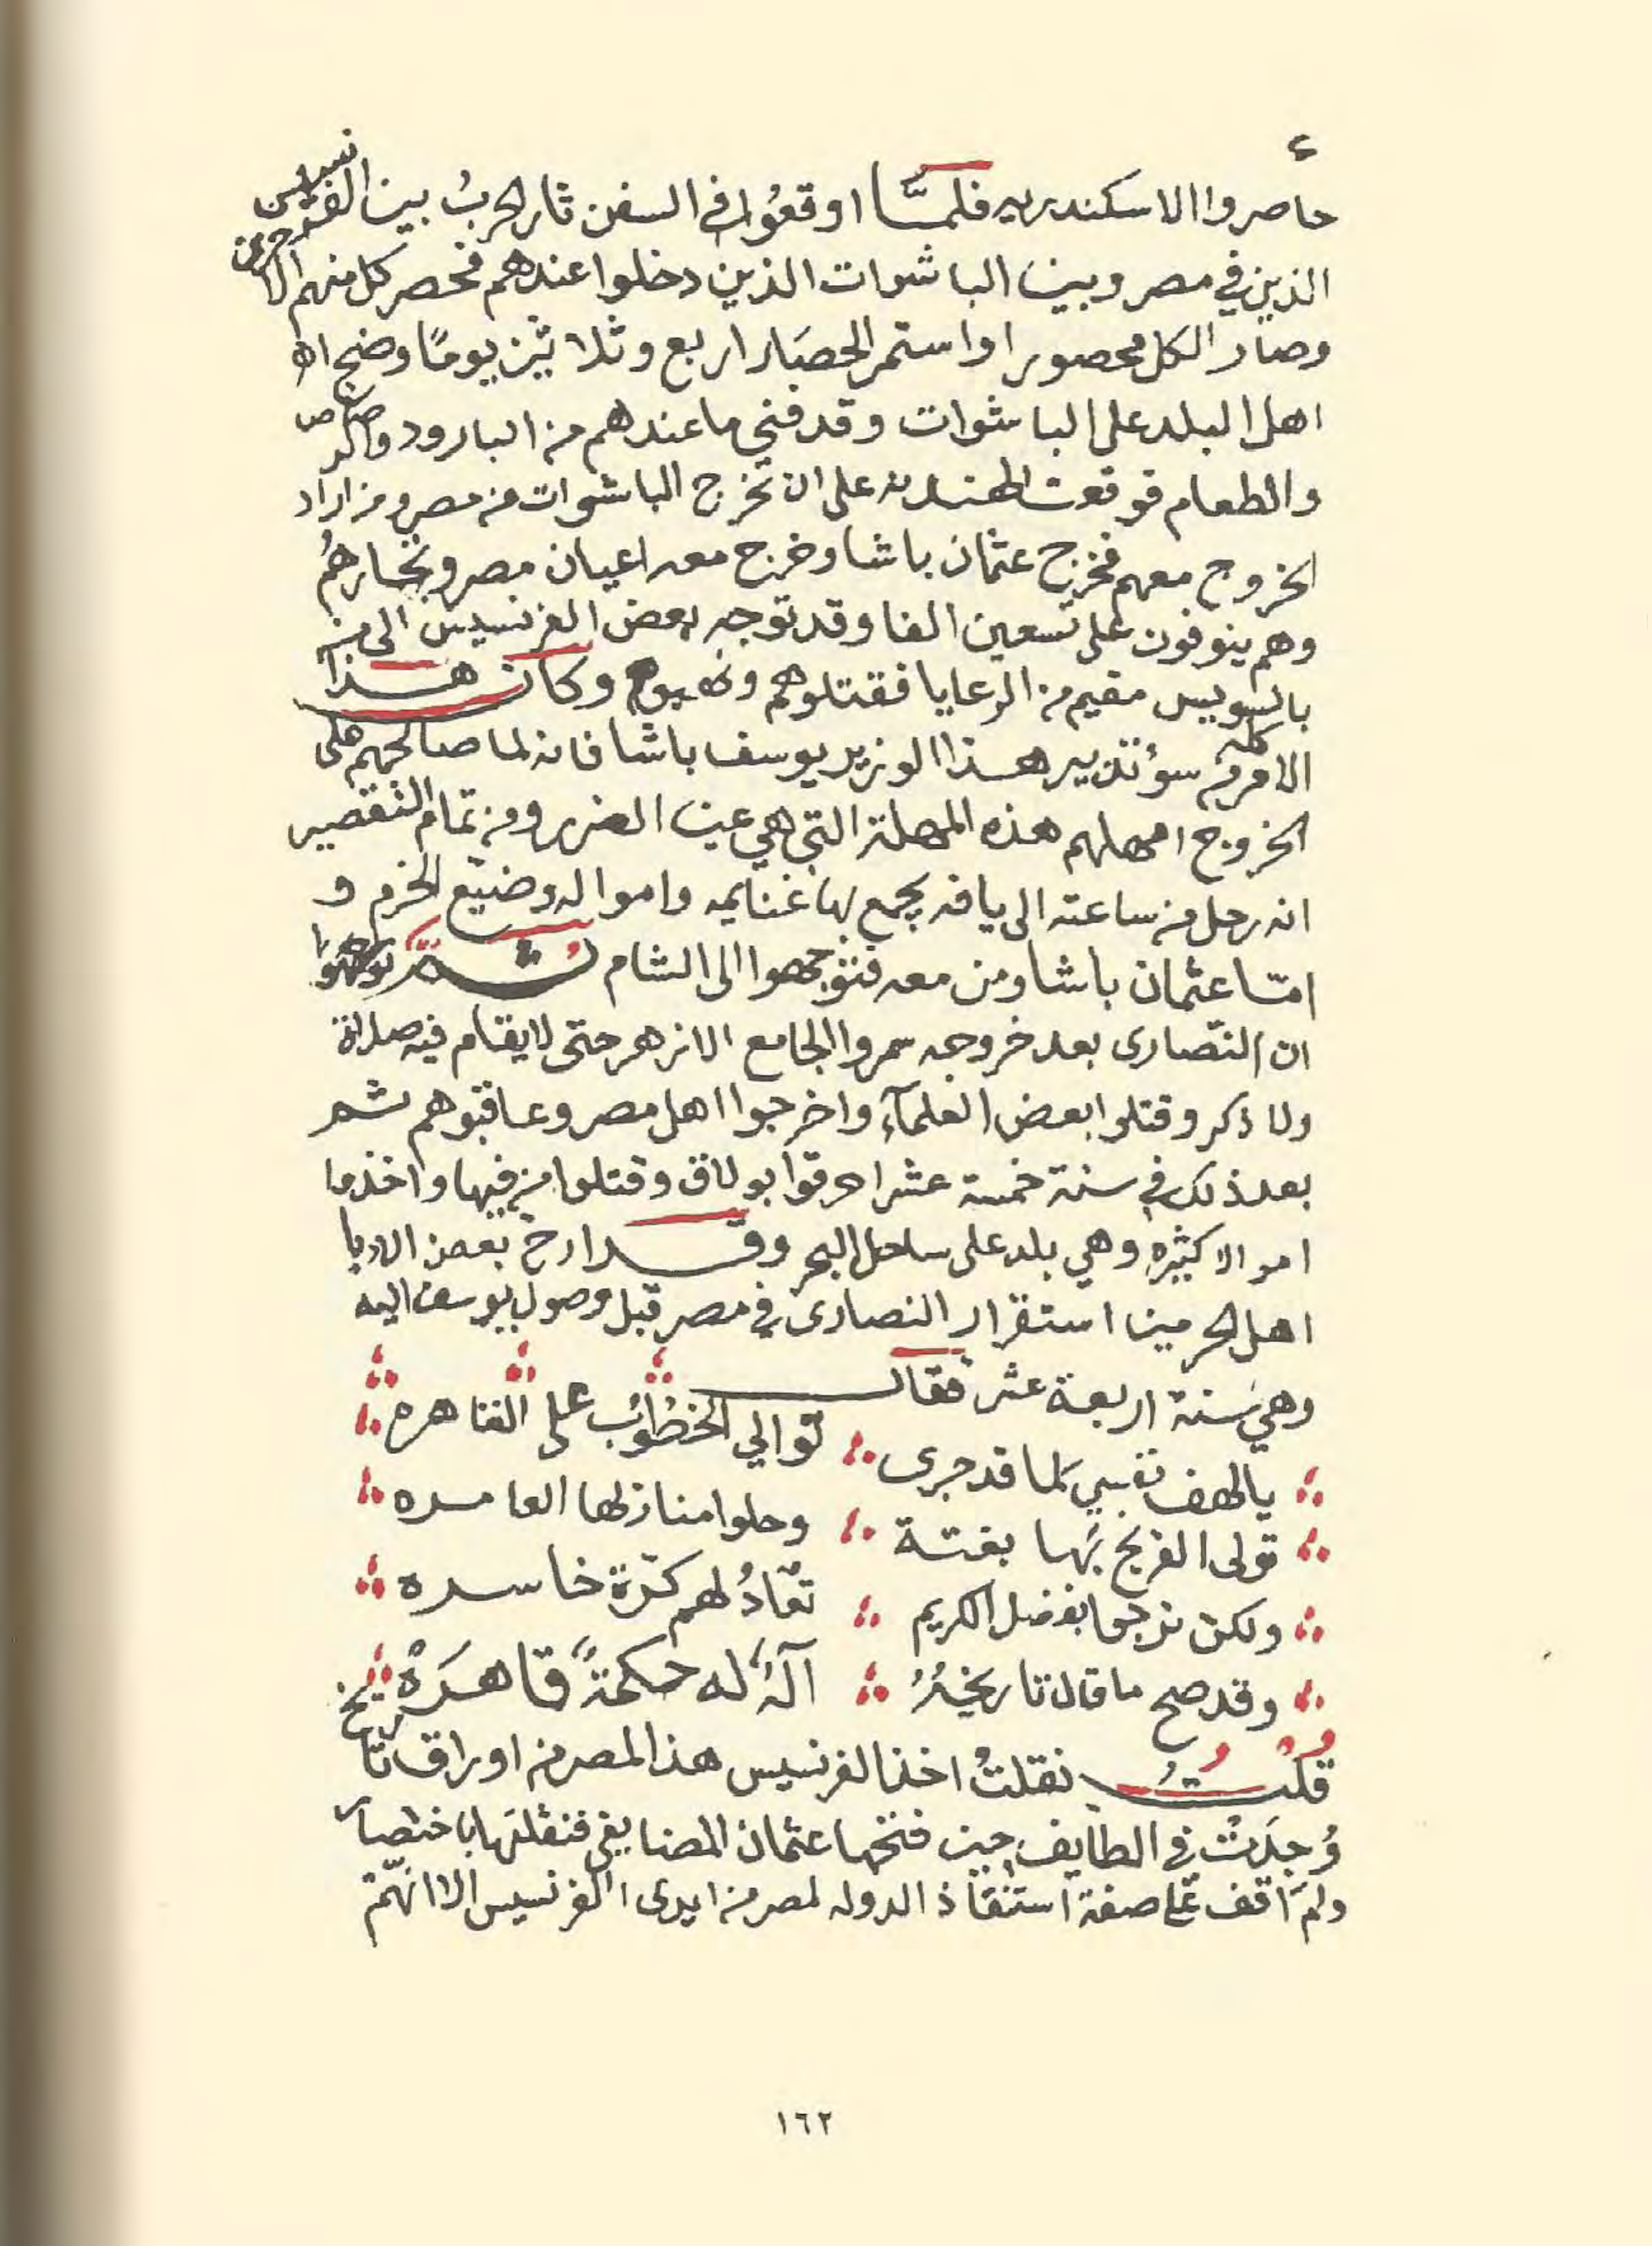 ٤
حاصروا الاسكندريه فلمّا اوقعوا في السفن ثار الحربُ بين الفرنسيس
الذين في مصر وبين الباشوات الذين دخلوا عندهم فحصر كل منهم الاخرين
وصار الكل محصورا واستمر الحصار اربع وثلاثين يومًا وضج اه
اهل البلد على الباشوات وقد فني ما عندهم من البارود والرصاص
والطعام فوقعت الهدنه على ان تخرج الباشوات من مصر ومن اراد
الخروج معهم فخرج عثمان باشا وخرج معه اعيان مصر وتجارهُم
وهم ينوفون على تسعين الفا وقد توجه بعض الفرنسيس الى من
بالسويس مقيم من الرعايا فقتلوهم ونهبوهم وكان هذا
الامر كله من سوُ تدبير هذا الوزير يوسف باشا فانه لما صالحهم على
الخروج امهلهم هذه المهلة التي هي عين الضرر ومن تمام التقصير
انه رحل من ساعته الى يافه يجمع بها غنايمه وامواله وضيّع الحزم و
امّا عثمان باشا ومن معه فتوجهوا الى الشام ثُمَّ
ان النّصارى بعد خروجه سمروا الجامع الازهر حتى لا يقام فيه صلاة
ولا ذكر وقتلوا بعض العلمآء واخرجوا اهل مصر وعاقبوهم ثم
بعد ذلك في سنة خمسة عشر احرقوا بولاق وقتلوا من فيها واخذوا
اموالا كثيره وهي بلد على ساحل البحر وقد ارخ بعض الادبا
اهل الحرمين استقرار النصارى في مصر قبل وصول يوسف اليه
وهي سَنة اربعة عشر فقال
يالهف نفسي لما قد جرى توالي الخطوُب على القاهره
تولى الفرنج بَها بغتة وحلوا منازلها العامره
ولكن نرجوا بفضل الكريم تعادُ لهم كرّة خاسره
وقد صح ما قال تاريخُهُ آلهُ له حكمةً قاهَرَهْ
قلتُ نقلتُ اخذ الفرنسيس هذا لمصر من اوراق تاريخ
وُجِدَتْ في الطايف حين فتحها عثمان المضايفي فنقلتها باختصار
ولم اقف على صفة استنقاذ الدوله لمصر من ايدى الفرنسيس الا انّهم
١٦٢